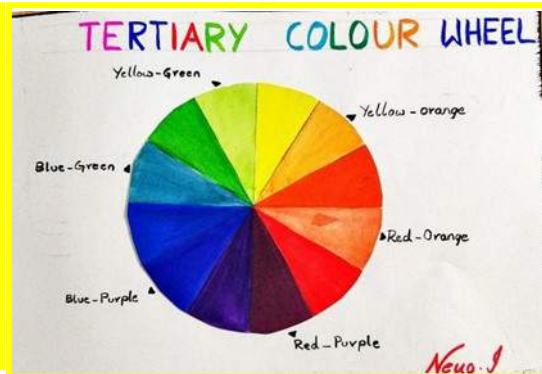 TERTIARY COLOUR WHEEL
Yellow-Green
Yellow-orange
Blue-Green
Red-Orange
Blue-Purple
Red-Purple